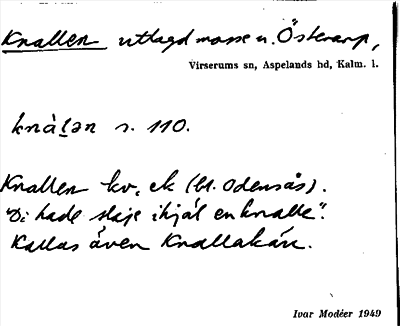 Knallen utlagd mosse u. Österarp,
Virserums sn, Aspelands hd, Kalm. l.
knàḷən s. 110.
Knallen kv, ek (bl. Odensås).
"Di hade slaje ihjäl en knalle".
Kallas även Knallakärr.
Ivar Modéer 1949